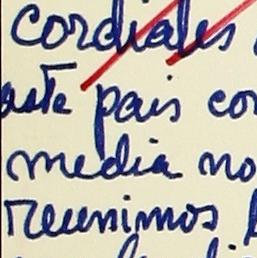 cordiales
este pais con
media no
reunimos